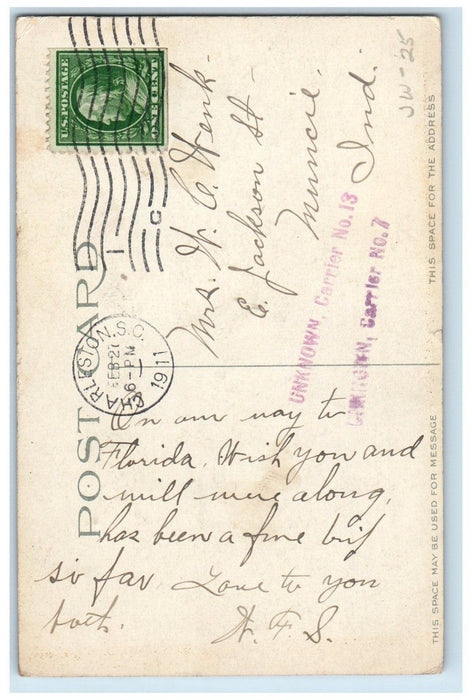 U.S. POSTAGE
ONE CENT
JW-'25
CHARLESTON, S.C.
FEB 27
6-PM
1911
1
C
POST CARD
THIS SPACE FOR THE ADDRESS
Mrs. W. C. Wenk-
E. Jackson St-
Muncie,
Ind.
UNKNOWN, Carrier No. 13
UNKNOWN, Carrier No. 7
THIS SPACE MAY BE USED FOR MESSAGE
On our way to
Florida. Wish you and
Will were along,
has been a fine trip
so far. Love to you
both.
H. F. S.